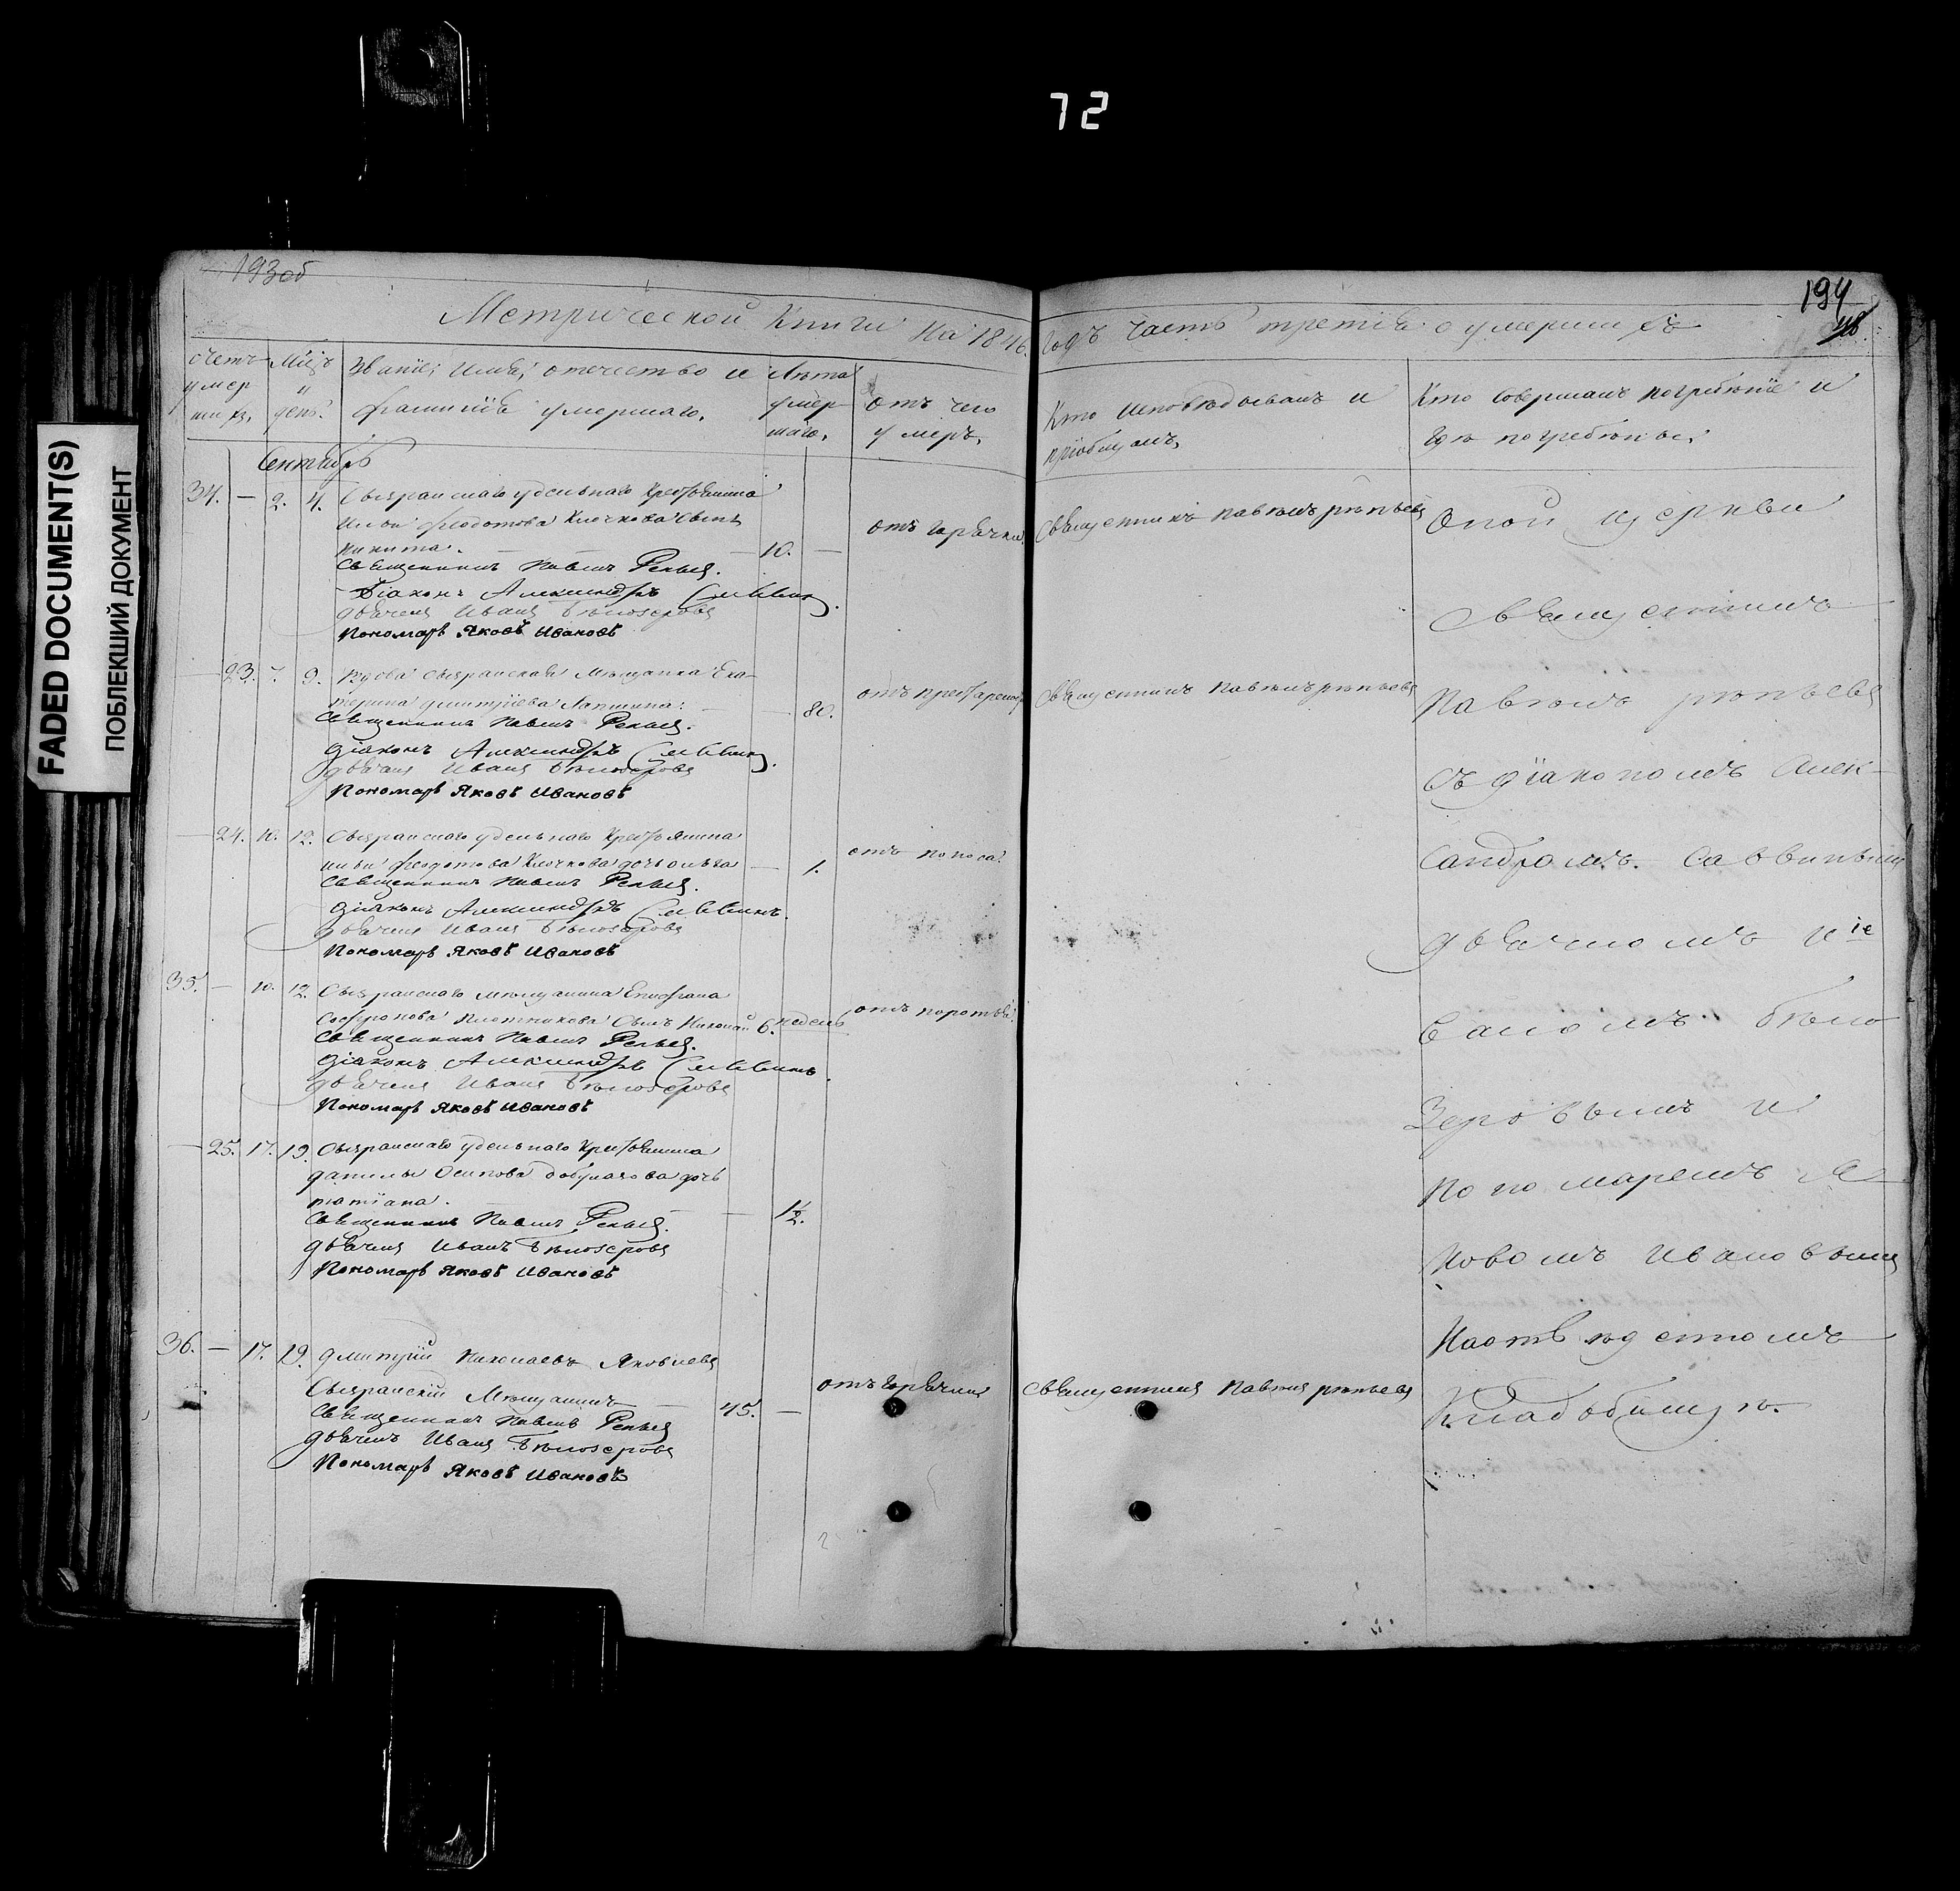 72
FADED DOCUMENT(S)
ПОБЛЕКШИЙ ДОКУМЕНТ
193об
194
Метрической Книги на 1846. годъ часть третія о умершихъ
счетъ умер шихъ,
Мѣсцъ и день.
Званіе, имя, отечество и фамилія умершаго.
Лѣта умер шаго,
отъ чего умеръ,
Кто исповѣдывалъ и пріобщалъ,
Кто совершалъ погребеніе и гдѣ погребены,
Сентябрь
34. — 2. 4. Сызранскаго удельнаго крестьянина
Ильи Феодотова Клочкова сынъ
Никита. — — — 10. — отъ горячки. Священникъ Павелъ рѣпьевъ
Священникъ Павелъ Репьев.
Діаконъ Александръ Саввинъ.
дьячекъ Иванъ Бѣлозеровъ
Пономарь Яковъ Ивановъ
— 23. 7. 9. Вдова Сызранская Мѣщанка Ека-
терина Дмитріева Лапшина. — 80. отъ престарелос Священникъ Павелъ рѣпьевъ
Священникъ Павелъ Репьев.
Діаконъ Александръ Саввинъ.
дьячекъ Иванъ Бѣлозеровъ
Пономарь Яковъ Ивановъ
— 24. 10. 12. Сызранскаго удельнаго Крестьянина
Ильи Феодотова Клочкова дочь ольга — 1. отъ поноса.
Священникъ Павелъ Репьев.
Діаконъ Александръ Саввинъ.
дьячекъ Иванъ Бѣлозеровъ
Пономарь Яковъ Ивановъ
35. — 10. 12. Сызранскаго мѣщанина Епифана
Софронова Плотникова Сынъ Николай 6. недель отъ
Священникъ Павелъ Репьев.
Діаконъ Александръ Саввинъ.
дьячекъ Иванъ Бѣлозеровъ
Пономарь Яковъ Ивановъ
— 25. 17. 19. Сызранскаго удельнаго Крестьянина
данилы Осипова дочь
татіана. — — 1/2.
Священникъ Павелъ Репьев.
дьячекъ Иванъ Бѣлозеровъ
Пономарь Яковъ Ивановъ
36. — 17. 19. Дмитрій Николаевъ Яковлевъ
Сызранскій Мѣщанинъ — 45. — отъ горячки Священникъ Павелъ рѣпьевъ
Священникъ Павелъ Репьев
дьячекъ Иванъ Бѣлозеровъ
Пономарь Яковъ Ивановъ
Оной церкви
Священникъ
Павелъ рѣпьевъ
съ діакономъ Алек-
сандромъ Саввинымъ
дьячкомъ И
ваномъ бѣло
зеровымъ и
пономаремъ Я
ковомъ Ивановымъ
На
Кладбищѣ.